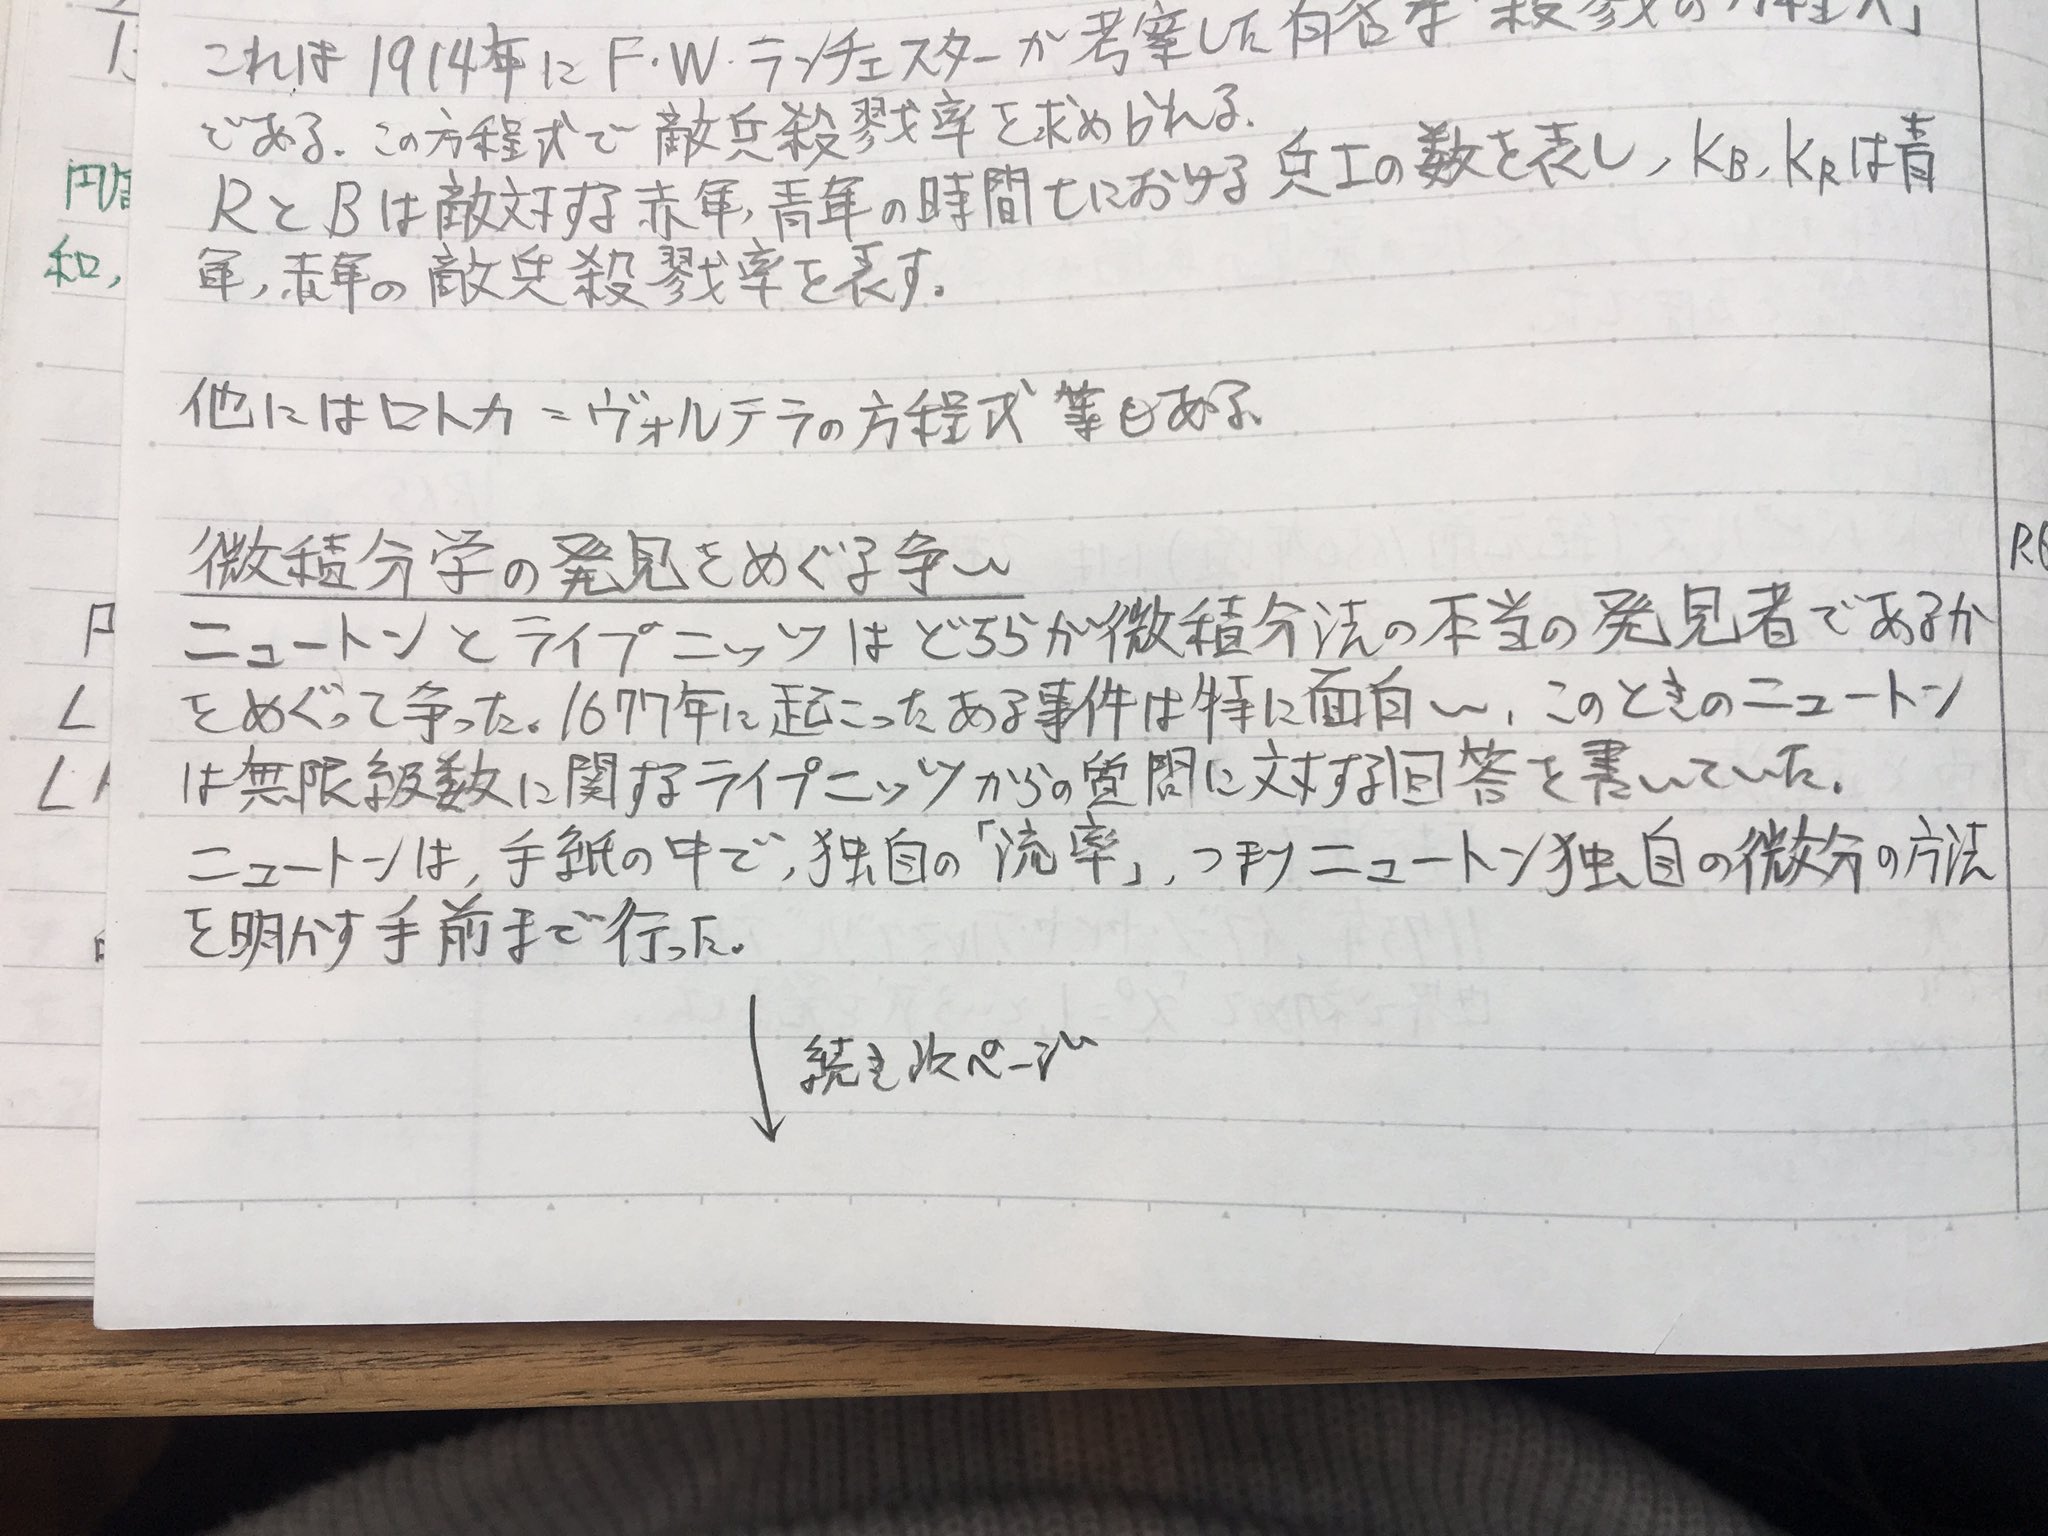 これは1914年にF.W.ランチェスターが考案した有名な「殺戮の方程式」
である。この方程式で敵兵殺戮率を求められる。
RとBは敵対する赤軍,青軍の時間tにおける兵士の数を表し,KB,KRは青
軍,赤軍の敵兵殺戮率を表す。
他にはロトカ=ヴォルテラの方程式等もある。
微積分学の発見をめぐる争い
ニュートンとライプニッツはどちらが微積分法の本当の発見者であるか
をめぐって争った。1677年に起こったある事件は特に面白い,このときのニュートン
は無限級数に関するライプニッツからの質問に対する回答を書いていた。
ニュートンは,手紙の中で,独自の「流率」,つまりニュートン独自の微分の方法
を明かす手前まで行った。
続き次ページ
和,